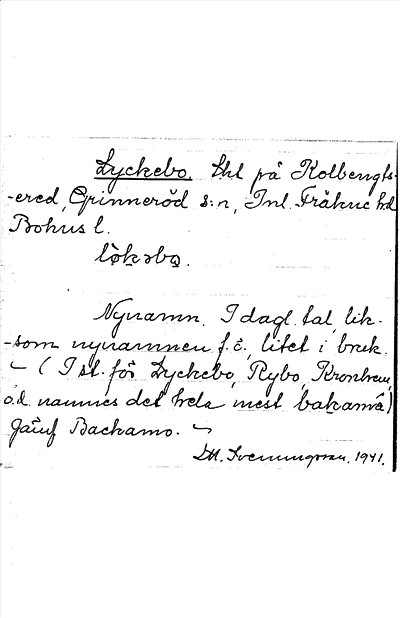 Lyckebo. Shl på Kolbengts-
-ered, Grinneröd s:n, Inl. Fräkne hd
Bohus l.
lø̀kəbo̱.
Nynamn. I dagl. tal, lik-
-som nynamnen f.ö., litet i bruk.
– (I st. för Lyckebo, Rybo, Kronhem,
o.d. namnes det hela mest bakamå)
Jämf Backamo. –
M. Sveningsson. 1941.